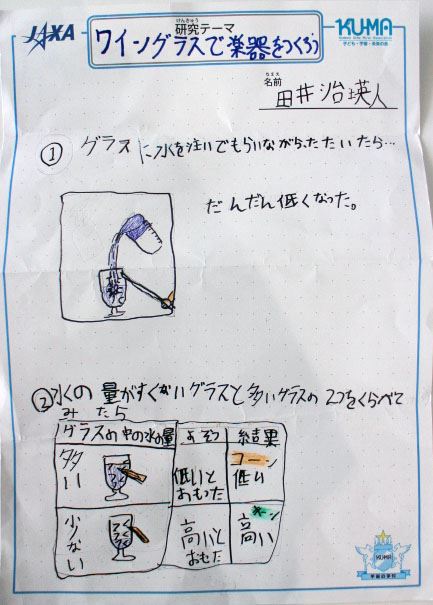 JAXA
けんきゅう
研究テーマ
ワイングラスで楽器をつくろう
KUMA
子ども・宇宙・未来の会
なまえ
名前
田井治瑛人
① グラスに水を注いでもらいながら、たたいたら…
だんだん低くなった。
②水の量がすくないグラスと多いグラスの2つをくらべて
みたら
グラスの中の水の量 よそう 結果
多い 低いとおもった コーン 低い
少ない 高いとおもた キーン 高い
KUMA
宇宙の学校